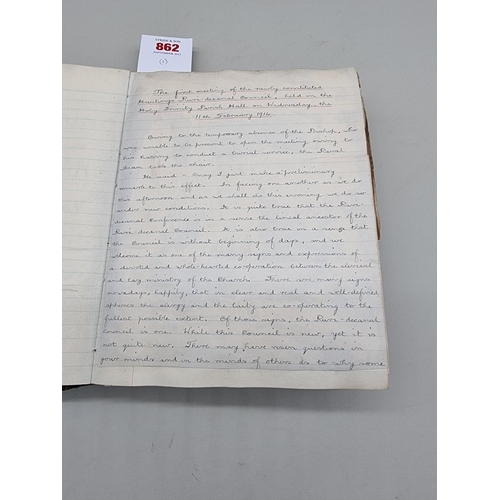 862
(1)
The first meeting of the newly constituted
Hastings Ruri-decanal Council, held in the
Holy Trinity Parish Hall on Wednesday, the
11th February 1914.
Owing to the temporary absence of the Bishop, who
was unable to be present to open the meeting owing to
his having to conduct a burial service, the Rural
Dean took the chair.
He said - May I just make a preliminary
remark to this effect. In facing one another as we do
this afternoon and as we shall do this evening we do so
under new conditions. It is quite true that the Ruri-
decanal Conference is in a sense the lineal ancestor of the
Ruri-decanal Council. It is also true in a sense that
the Council is without beginning of days, and we
welcome it as one of the many signs and expressions of
a devoted and whole-hearted co-operation between the clerical
and lay ministry of the Church. There are many signs
nowadays, happily, that in clear and real and well-defined
spheres the clergy and the laity are co-operating to the
fullest possible extent. Of those signs, the Ruri-decanal
Council is one. While this Council is new, yet it is
not quite new. There may have risen questions in
your minds and in the minds of others as to why some